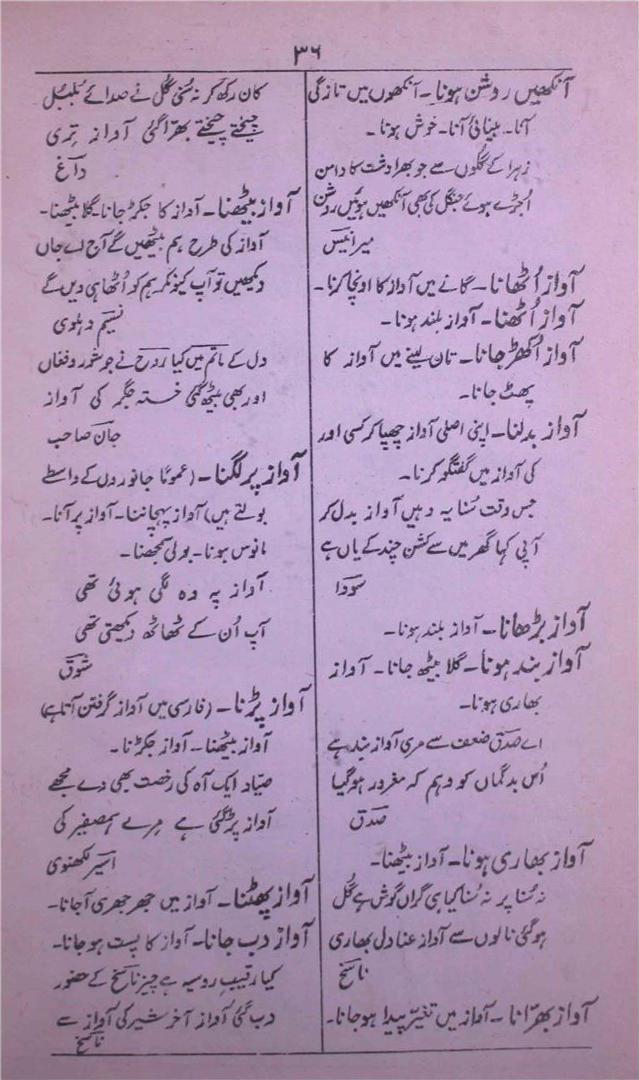 ۳۶
آنکھیں روشن ہونا۔ آنکھوں میں تازگی
آنا۔ بینائی آنا۔ خوش ہونا۔
زہرا کے گلوں سے جو بھرا دشت کا دامن
اجڑے ہوئے جنگل کی بھی آنکھیں ہوئیں روشن
میر انیس
آواز اُٹھانا۔ گانے میں آواز کا اونچا کرنا۔
آواز اُٹھنا۔ آواز بلند ہونا۔
آواز اُکھڑ جانا۔ تان لینے میں آواز کا
پھٹ جانا۔
آواز بدلنا۔ اپنی اصلی آواز چھپا کر کسی اور
کی آواز میں گفتگو کرنا۔
جس وقت سُنا یہ وہیں آواز بدل کر
آپی کہا گھر میں سے کشن چند کے یاں ہے
سودا
آواز بڑھانا۔ آواز بلند ہونا۔
آواز بند ہونا۔ گلا بیٹھ جانا۔ آواز
بھاری ہونا۔
اے صدق ضعف سے مری آواز بند ہے
اُس بدگماں کو وہم کہ مغرور ہوگیا
صدق
آواز بھاری ہونا۔ آواز بیٹھنا۔
نہ سُنا پر نہ سُنا کیا ہی گراں گوش ہے گُل
ہوگئی نالوں سے آواز عنادل بھاری
ناسخ
آواز بھرّانا۔ آواز میں تغیّر پیدا ہوجانا۔
کان رکھ کر نہ سُنی گل نے صدائے بلبل
چیختے چیختے بھرّا گئی آواز تری
داغ
آواز بیٹھنا۔ آواز کا جکڑ جانا۔ گلا بیٹھنا۔
آواز کی طرح ہم بیٹھیں گے آج اے جاں
دیکھیں تو آپ کیونکر ہم کو اُٹھا ہی دیں گے
نسیم دہلوی
دل کے ماتم میں کیا روح نے جو شور و فغاں
اور بھی بیٹھ گئی خستہ جگر کی آواز
جان صاحب
آواز پر لگنا۔ (عموماً جانوروں کے واسطے
بولتے ہیں) آواز پہچاننا۔ آواز پر آنا۔
مانوس ہونا۔ بولی سمجھنا۔
آواز پہ وہ لگی ہوئی تھی
آپ اُن کے ٹھاٹھ دیکھتی تھی
شوق
آواز پڑنا۔ (فارسی میں آواز گرفتن آتا ہے)
آواز بیٹھنا۔ آواز جکڑنا۔
صیّاد ایک آہ کی رخصت بھی دے مجھے
آواز پڑگئی ہے مرے ہمصفیر کی
اسیر لکھنوی
آواز پھٹنا۔ آواز میں جھرجھری آجانا۔
آواز دب جانا۔ آواز کا پست ہوجانا۔
کیا رقیبِ روسیہ ہے چیز ناسخ کے حضور
دب گئی آواز آخر شیر کی آواز سے
ناسخ